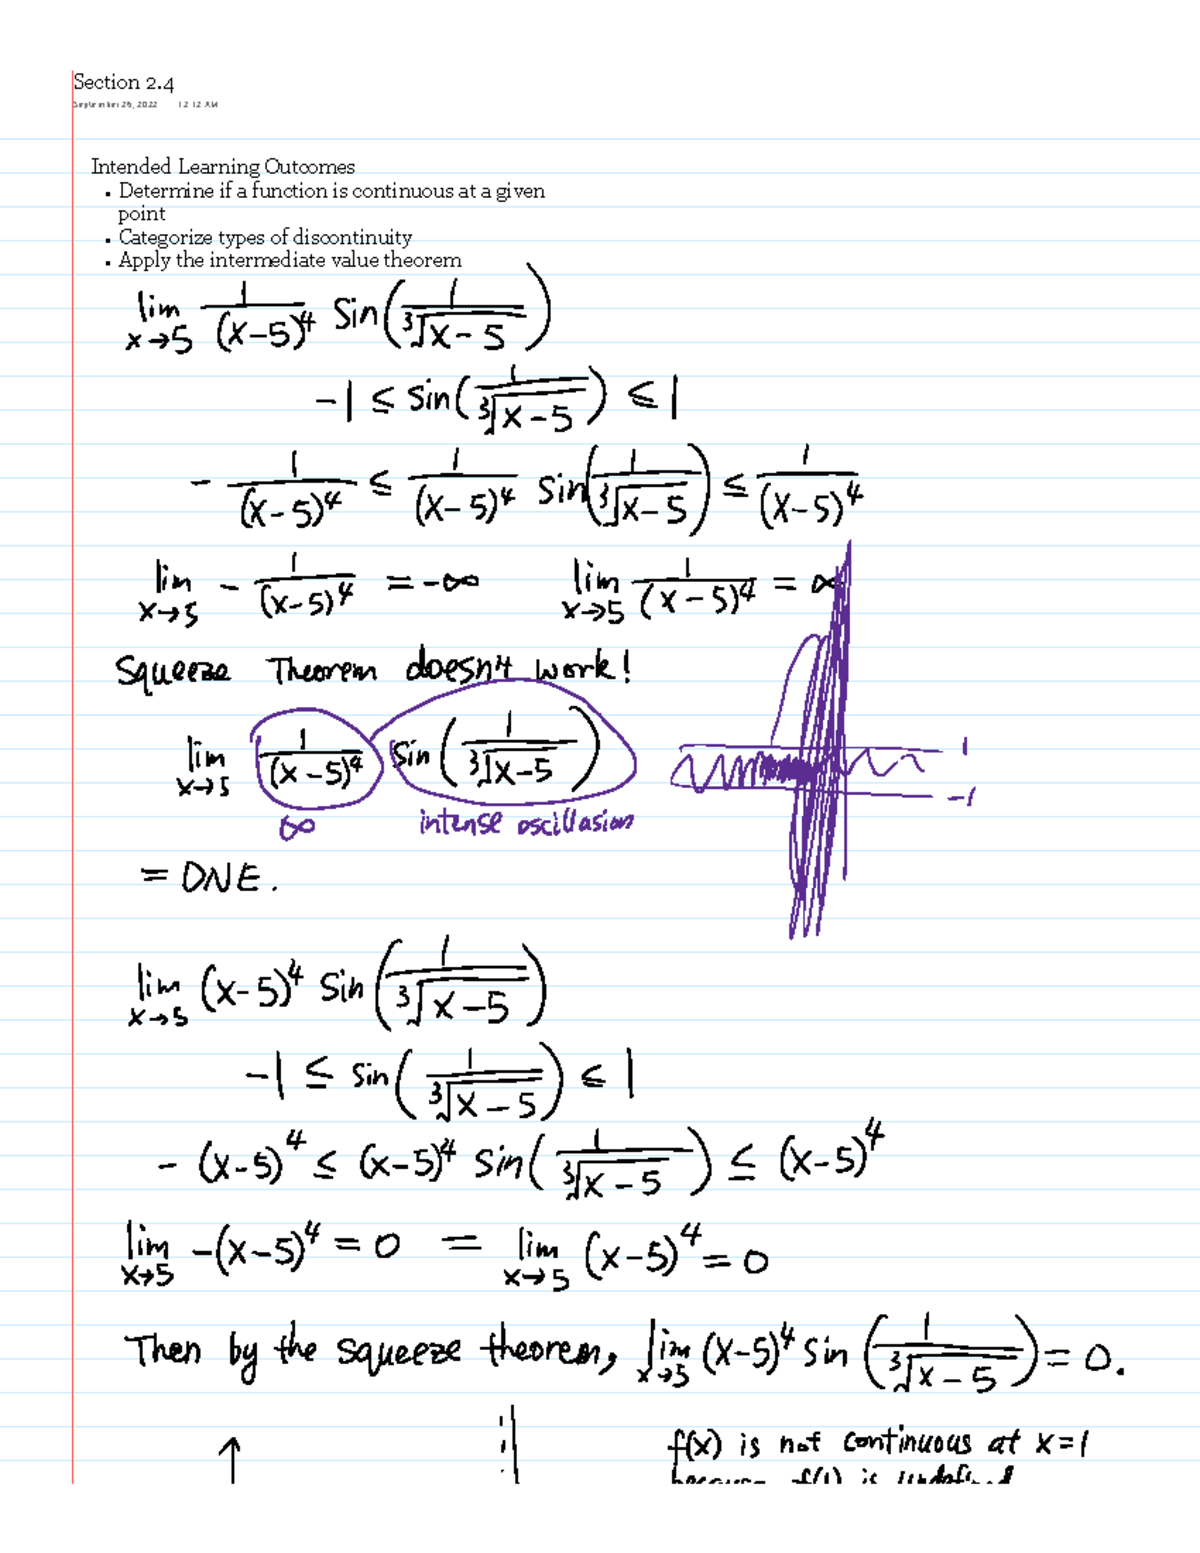 Section 2.4
September 26, 2022 12:12 AM
Intended Learning Outcomes
• Determine if a function is continuous at a given
point
• Categorize types of discontinuity
• Apply the intermediate value theorem
lim x→5 1/(x-5)^4 Sin(1/∛(x-5))
-1 ≤ sin(1/∛(x-5)) ≤ 1
- 1/(x-5)^4 ≤ 1/(x-5)^4 sin(1/∛(x-5)) ≤ 1/(x-5)^4
lim x→5 - 1/(x-5)^4 = -∞ lim x→5 1/(x-5)^4 = ∞
Squeeze Theorem doesn't work!
lim x→5 1/(x-5)^4 sin(1/∛(x-5))
1
-1
∞ intense oscillasion
= DNE.
lim x→5 (x-5)^4 Sin(1/∛(x-5))
-1 ≤ sin(1/∛(x-5)) ≤ 1
- (x-5)^4 ≤ (x-5)^4 sin(1/∛(x-5)) ≤ (x-5)^4
lim x→5 -(x-5)^4 = 0 = lim x→5 (x-5)^4 = 0
Then by the squeeze theorem, lim x→5 (x-5)^4 sin(1/∛(x-5)) = 0.
f(x) is not continuous at x=1
because f(1) is undefined